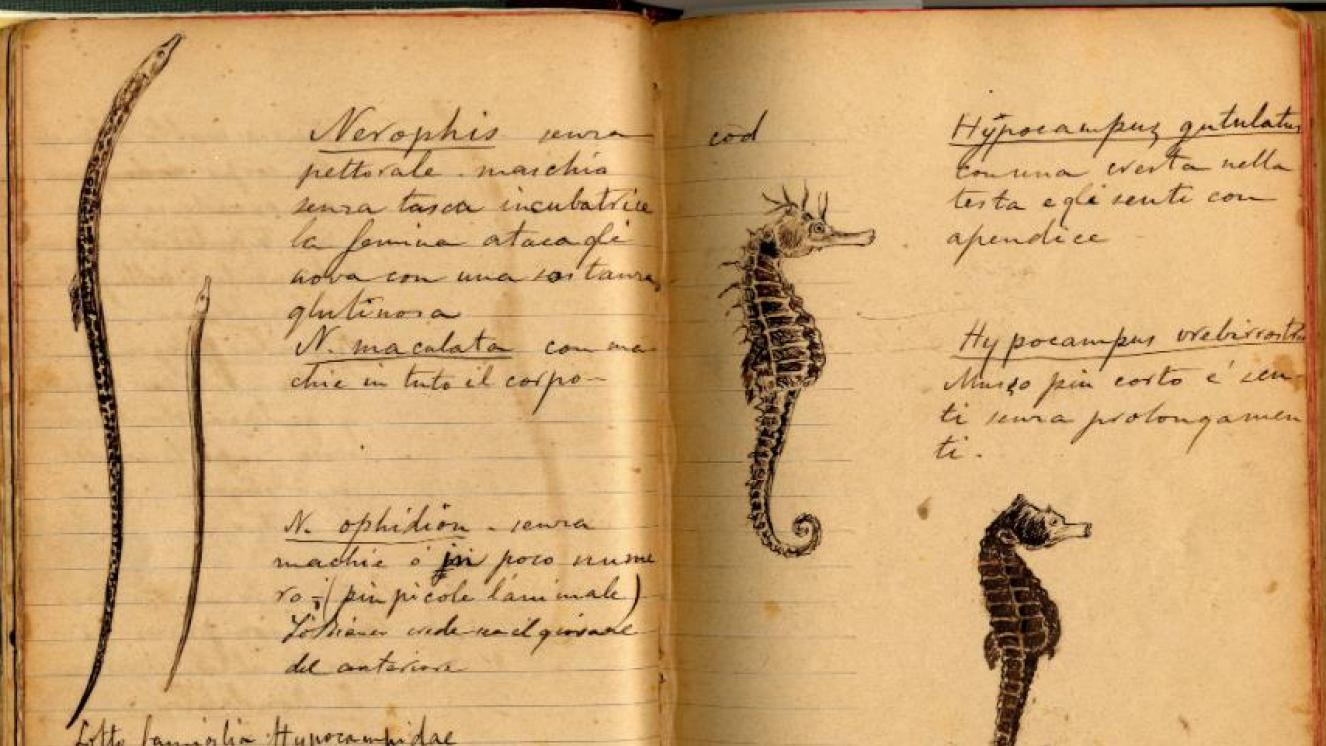 Nerophis senza
pettorale. maschio
senza tasca incubatrice
la femina ataca gli
uova con una sostanza
glutinosa
N. maculata con ma
chie in tuto il corpo -
N. ophidion - senza
machie o in poco nume
ro - (piu picole l'animale)
crede sia il giovane
del anteriore
Sotto famiglia Hypocampidae
cod
Hypocampus gutulatus
con una cresta nella
testa e gli senti con
apendice
Hypocampus brebirrostris
Muso piu corto é sen
ti senza prolongamen
ti.